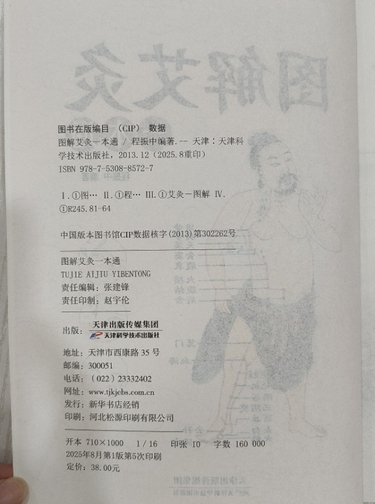 图书在版编目（CIP）数据
图解艾灸一本通 / 程振中编著. — 天津：天津科
学技术出版社，2013.12（2025.8重印）
ISBN 978-7-5308-8572-7
Ⅰ.①图… Ⅱ.①程… Ⅲ.①艾灸－图解 Ⅳ.
①R245.81-64
中国版本图书馆CIP数据核字(2013)第302262号
图解艾灸一本通
TUJIE AIJIU YIBENTONG
责任编辑：张建锋
责任印制：赵宇伦
出版：天津出版传媒集团
天津科学技术出版社
地址：天津市西康路 35 号
邮编：300051
电话：（022）23332402
网址：www.tjkjcbs.com.cn
发行：新华书店经销
印刷：河北松源印刷有限公司
开本 710×1000 1/16 印张 10 字数 160 000
2025年8月第1版第5次印刷
定价：38.00元